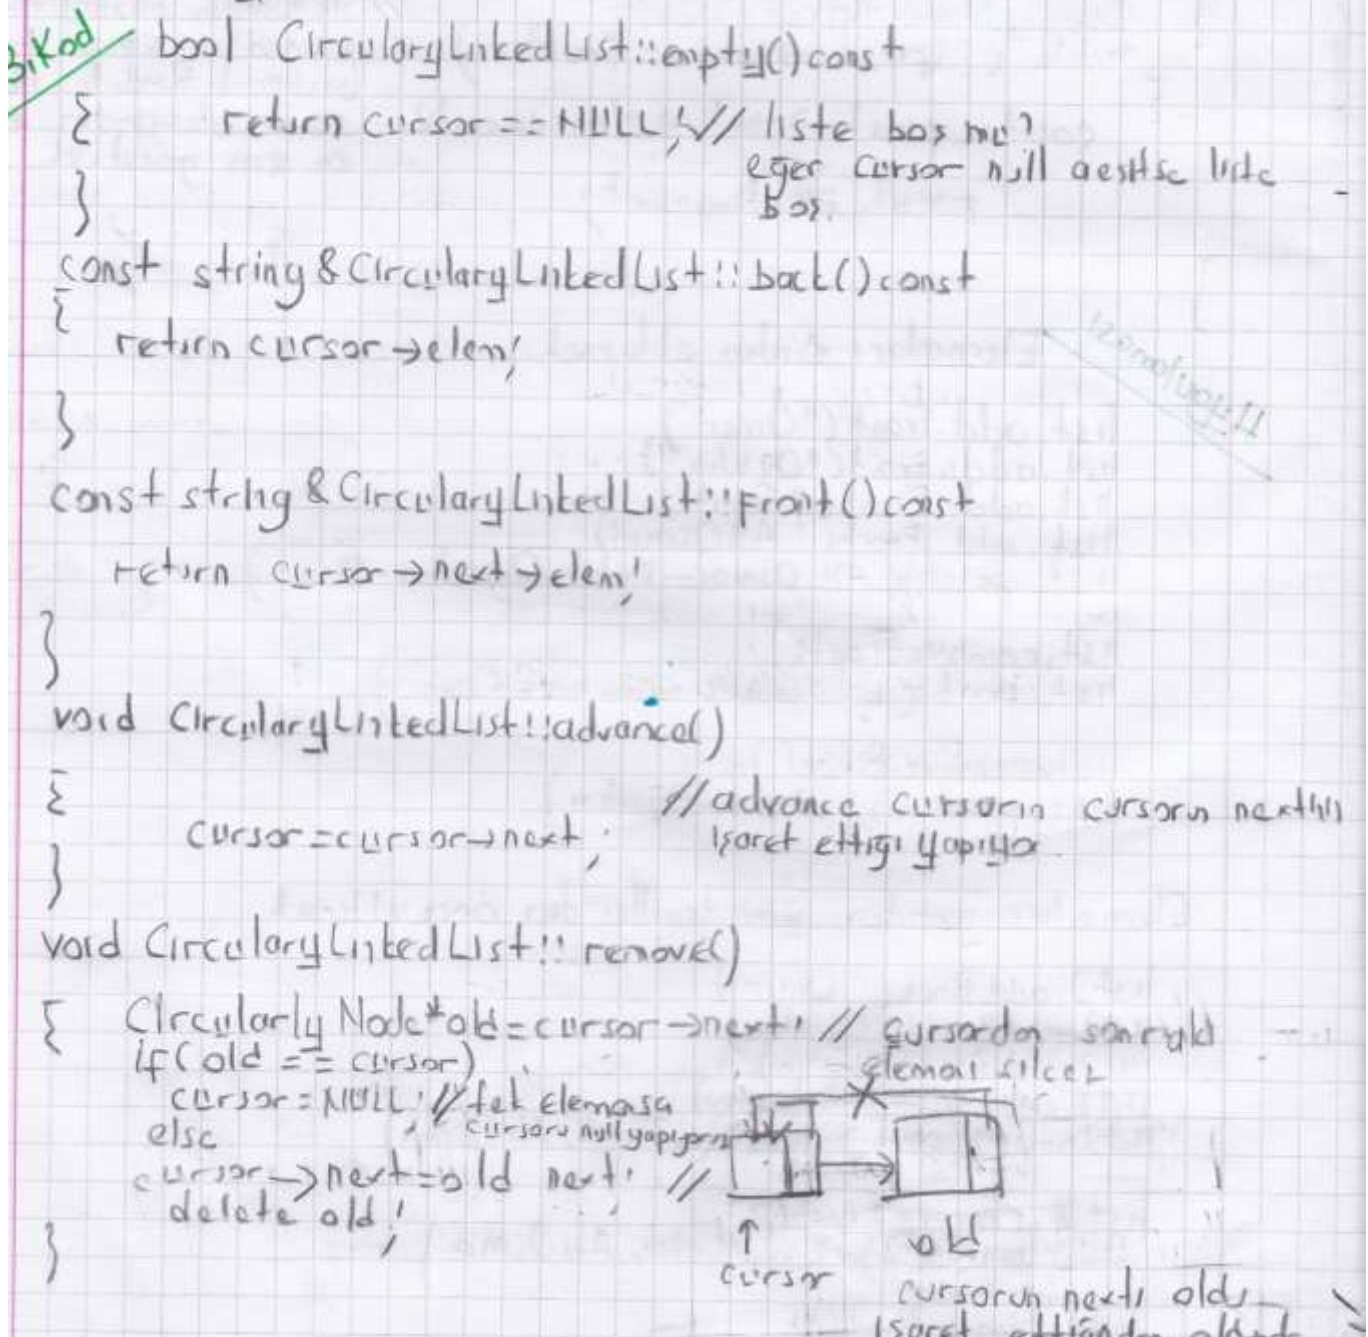 BiKod
bool CircularyLinkedList::empty()const
{ return cursor==NULL; // liste boş mu?
eger cursor null
boş.
}
const string &CircularyLinkedList::back()const
{
return cursor→elem;
}
const string &CircularyLinkedList::Front()const
return cursor→next→elem;
}
void CircularyLinkedList::advance()
{ // advance cursorın cursorın
cursor=cursor→next; işaret ettiği yapıyor
}
void CircularyLinkedList::remove()
{ Circularly Node*old=cursor→next; // cursordan
if(old == cursor) elemanı siler
cursor=NULL; // tek elemansa
else cursoru null yapıyoruz
cursor→next=old next; //
delete old;
}
↑ old
cursor
cursorun nexti
işaret